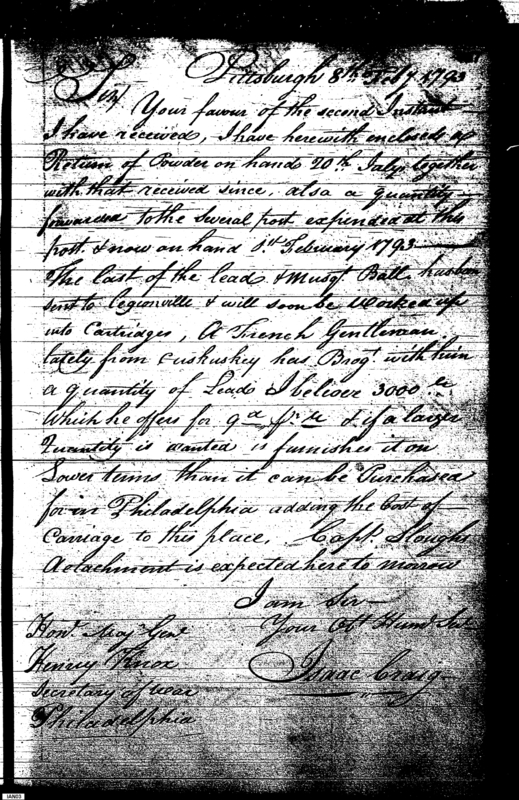 Pittsburgh 8th Feby 1793
Sir
Your favour of the second Instant
I have received, I have herewith enclosed a
Return of Powder on hand 20th July together
with that received since, also a quantity
forwarded to the Several post expended at this
post & now on hand 1st February 1793
The last of the lead & Musqt. Ball has been
sent to Legionville & will soon be Worked up
into Cartridges, A French Gentleman
lately from Cuskuskey has Brogt with him
a quantity of Lead I believe 3000 lb
Which he offers for 9d pr. lb & if a larger
Quantity is wanted is furnishes it on
Lower terms than it can be Purchased
for in Philadelphia adding the Cost of
Carriage to this place. Capt. Sloughs
detachment is expected here to morrow
I am Sir
Your Obt Humb. Sert
Isaac Craig
Hon. Maj. Genl
Henry Knox
Secretary of War
Philadelphia
IAN03